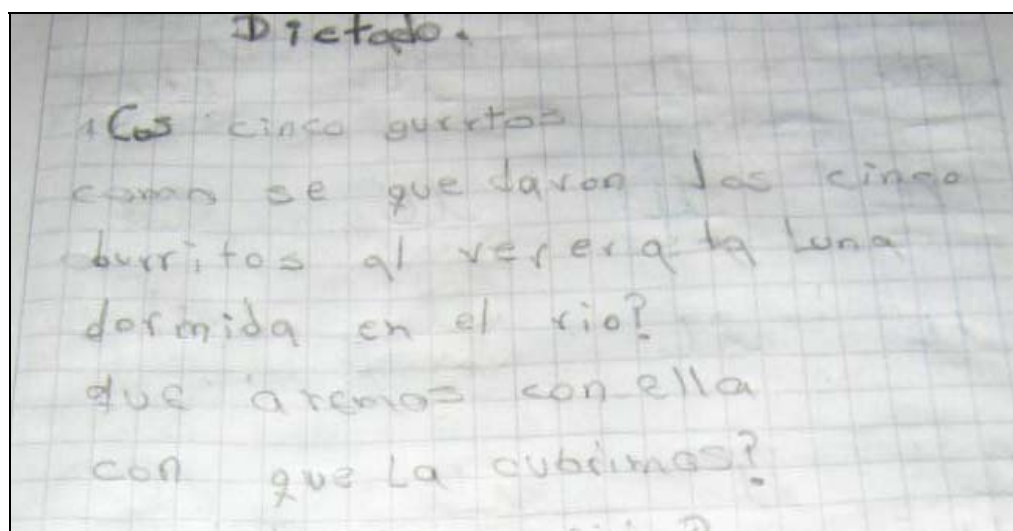 Dictado.
1 Cos cinco gurrtos
como se que daron los cinco
burritos al ver era la Luna
dormida en el rio?
que aremos con ella
con que La cubrimos?